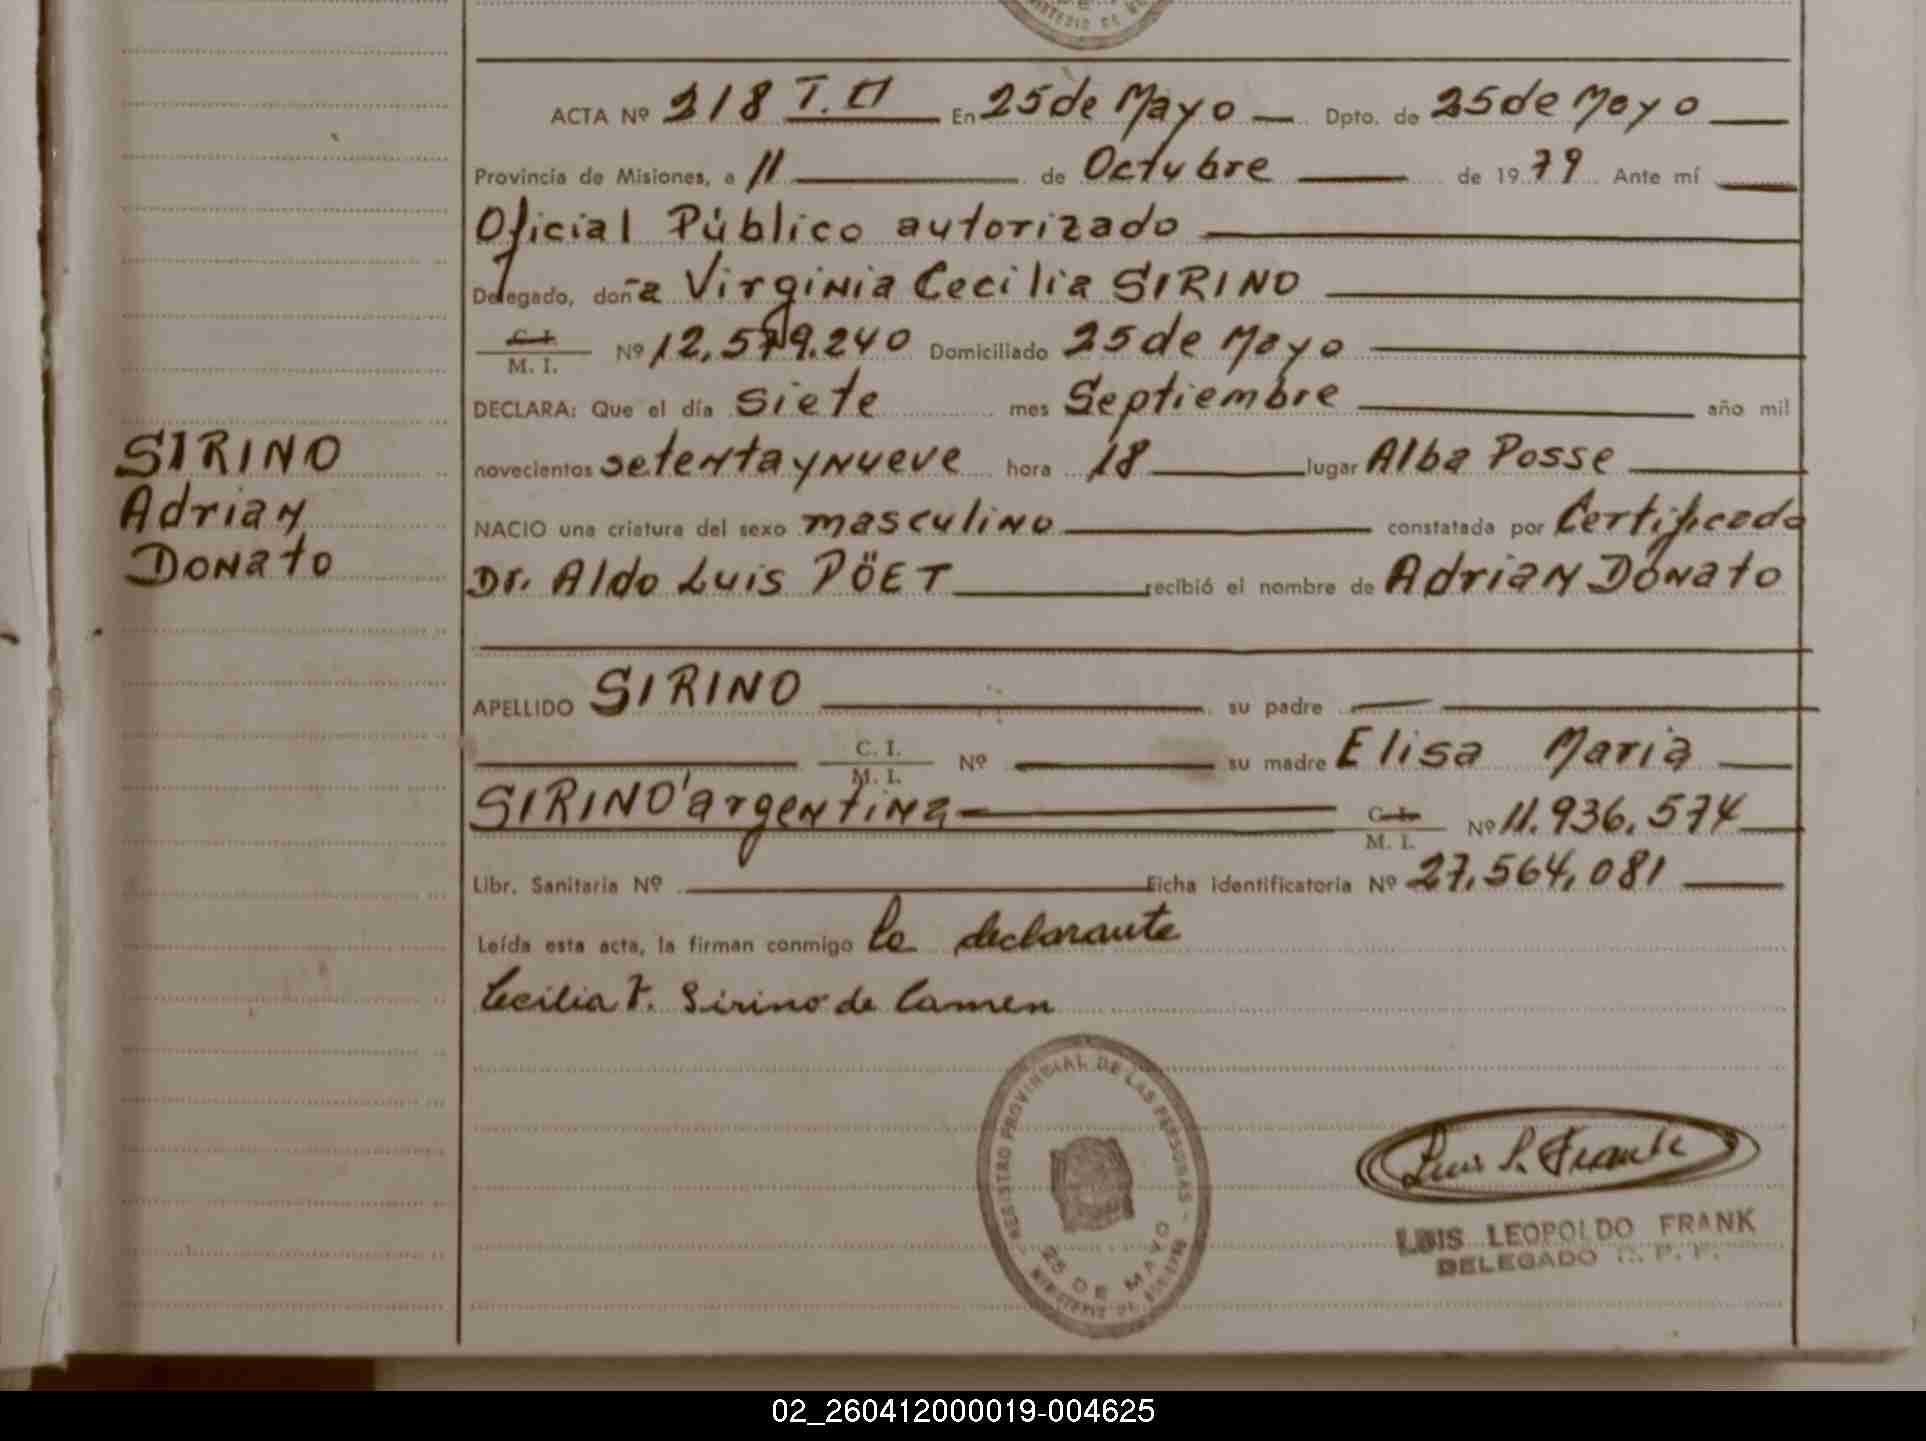 MINISTERIO DE
ACTA Nº 218 T. II En 25 de Mayo Dpto. de 25 de Mayo
Provincia de Misiones, a 11 de Octubre de 1979 Ante mí
Oficial Público autorizado
Delegado, doña Virginia Cecilia SIRINO
C. I.
M. I. Nº 12.579.240 Domiciliado 25 de Mayo
DECLARA: Que el día siete mes Septiembre año mil
novecientos setenta y nueve hora 18 lugar Alba Posse
NACIO una criatura del sexo masculino constatada por Certificado
Dr. Aldo Luis PÖET recibió el nombre de Adrian Donato
SIRINO
Adrian
Donato
APELLIDO SIRINO su padre
C. I.
M. I. Nº su madre Elisa Maria
SIRINO argentina C. I.
M. I. Nº 11.936.574
Libr. Sanitaria Nº Ficha identificatoria Nº 27,564,081
Leída esta acta, la firman conmigo la declarante
Cecilia V. Sirino de Camen
REGISTRO PROVINCIAL DE LAS PERSONAS
25 DE MAYO
MINISTERIO DE GOBIERNO
Luis L. Frank
LUIS LEOPOLDO FRANK
DELEGADO
02_260412000019-004625